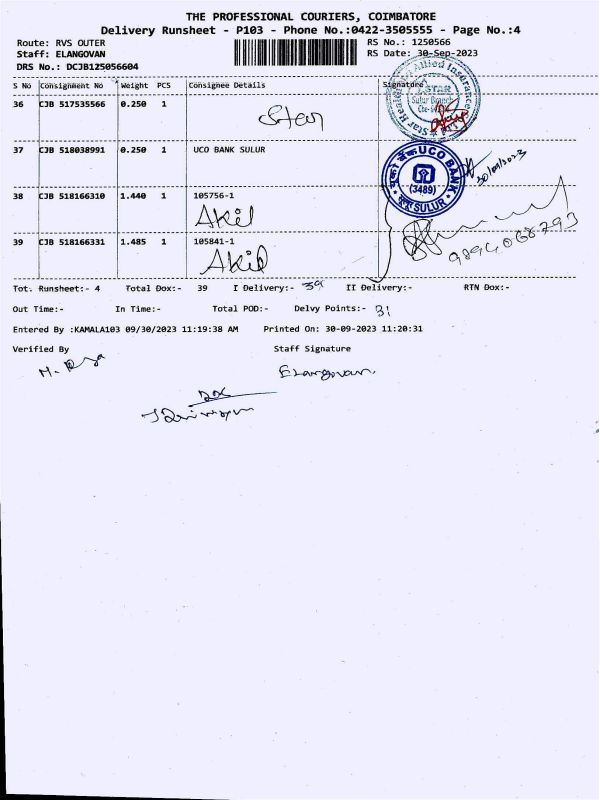 THE PROFESSIONAL COURIERS, COIMBATORE
Delivery Runsheet - P103 - Phone No.:0422-3505555 - Page No.:4
Route: RVS OUTER RS No.: 1250566
Staff: ELANGOVAN RS Date: 30-Sep-2023
DRS No.: DCJB125056604
S No Consignment No Weight PCS Consignee Details Signature
36 CJB 517535566 0.250 1 Star
37 CJB 518038991 0.250 1 UCO BANK SULUR
UCO BANK
(3489)
SULUR
30/09/2023
38 CJB 518166310 1.440 1 105756-1
Akil
39 CJB 518166331 1.485 1 105841-1
Akil
9894068793
Tot. Runsheet:- 4 Total Dox:- 39 I Delivery:- 39 II Delivery:- RTN Dox:-
Out Time:- In Time:- Total POD:- Delvy Points:- 31
Entered By :KAMALA103 09/30/2023 11:19:38 AM Printed On: 30-09-2023 11:20:31
Verified By Staff Signature
Elangovan.